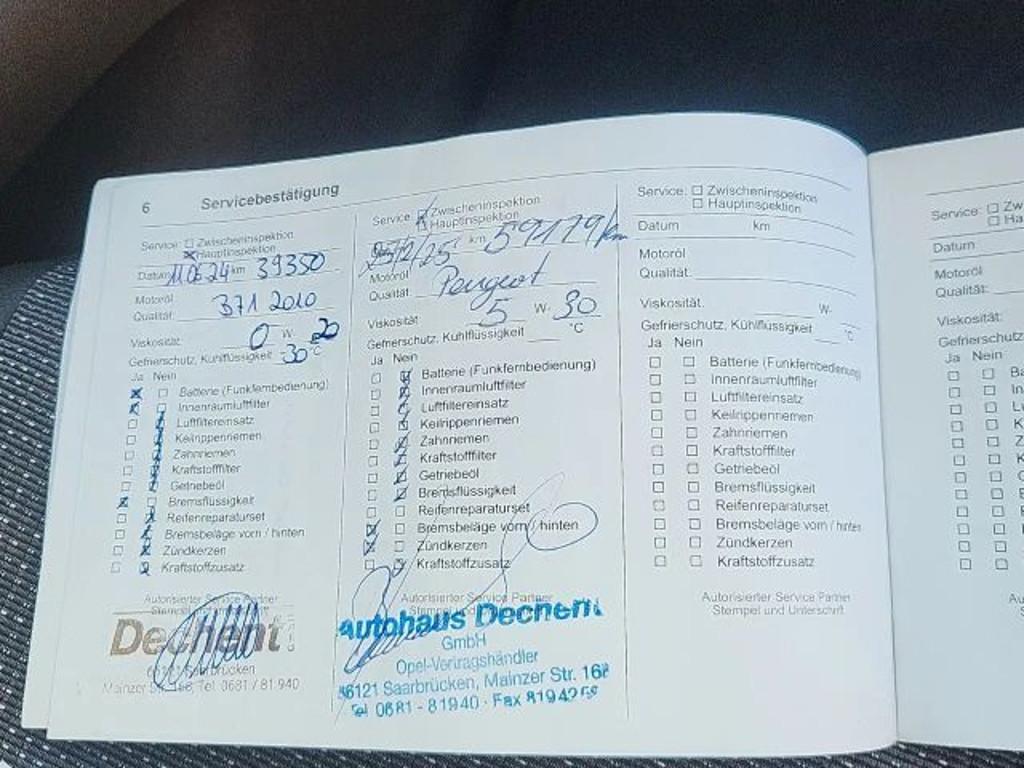 6 Servicebestätigung
Service: Zwischeninspektion
Hauptinspektion
Datum 11.06.24 km 39350
Motoröl
Qualität: B71 2010
Viskosität: 0 W- 20
Gefrierschutz, Kühlflüssigkeit -30 °C
Ja Nein
Batterie (Funkfernbedienung)
Innenraumluftfilter
Luftfiltereinsatz
Keilrippenriemen
Zahnriemen
Kraftstofffilter
Getriebeöl
Bremsflüssigkeit
Reifenreparaturset
Bremsbeläge vorn / hinten
Zündkerzen
Kraftstoffzusatz
Autorisierter Service Partner
Stempel und Unterschrift
Dechent
66121 Saarbrücken
Mainzer Str. 168, Tel. 0681 / 81 940
Service: Zwischeninspektion
Hauptinspektion
/2/25 km 59179 km
Motoröl
Qualität: Peugeot
Viskosität: 5 W- 30
Gefrierschutz, Kühlflüssigkeit °C
Ja Nein
Batterie (Funkfernbedienung)
Innenraumluftfilter
Luftfiltereinsatz
Keilrippenriemen
Zahnriemen
Kraftstofffilter
Getriebeöl
Bremsflüssigkeit
Reifenreparaturset
Bremsbeläge vorn / hinten
Zündkerzen
Kraftstoffzusatz
Autorisierter Service Partner
Stempel und
Autohaus Dechent
GmbH
Opel-Vertragshändler
66121 Saarbrücken, Mainzer Str. 168
Tel. 0681 - 81940 · Fax
Service: Zwischeninspektion
Hauptinspektion
Datum km
Motoröl
Qualität:
Viskosität: W-
Gefrierschutz, Kühlflüssigkeit °C
Ja Nein
Batterie (Funkfernbedienung)
Innenraumluftfilter
Luftfiltereinsatz
Keilrippenriemen
Zahnriemen
Kraftstofffilter
Getriebeöl
Bremsflüssigkeit
Reifenreparaturset
Bremsbeläge vorn / hinten
Zündkerzen
Kraftstoffzusatz
Autorisierter Service Partner
Stempel und Unterschrift
Service: Zw
Ha
Datum
Motoröl
Qualität:
Viskosität:
Gefrierschutz
Ja Nein